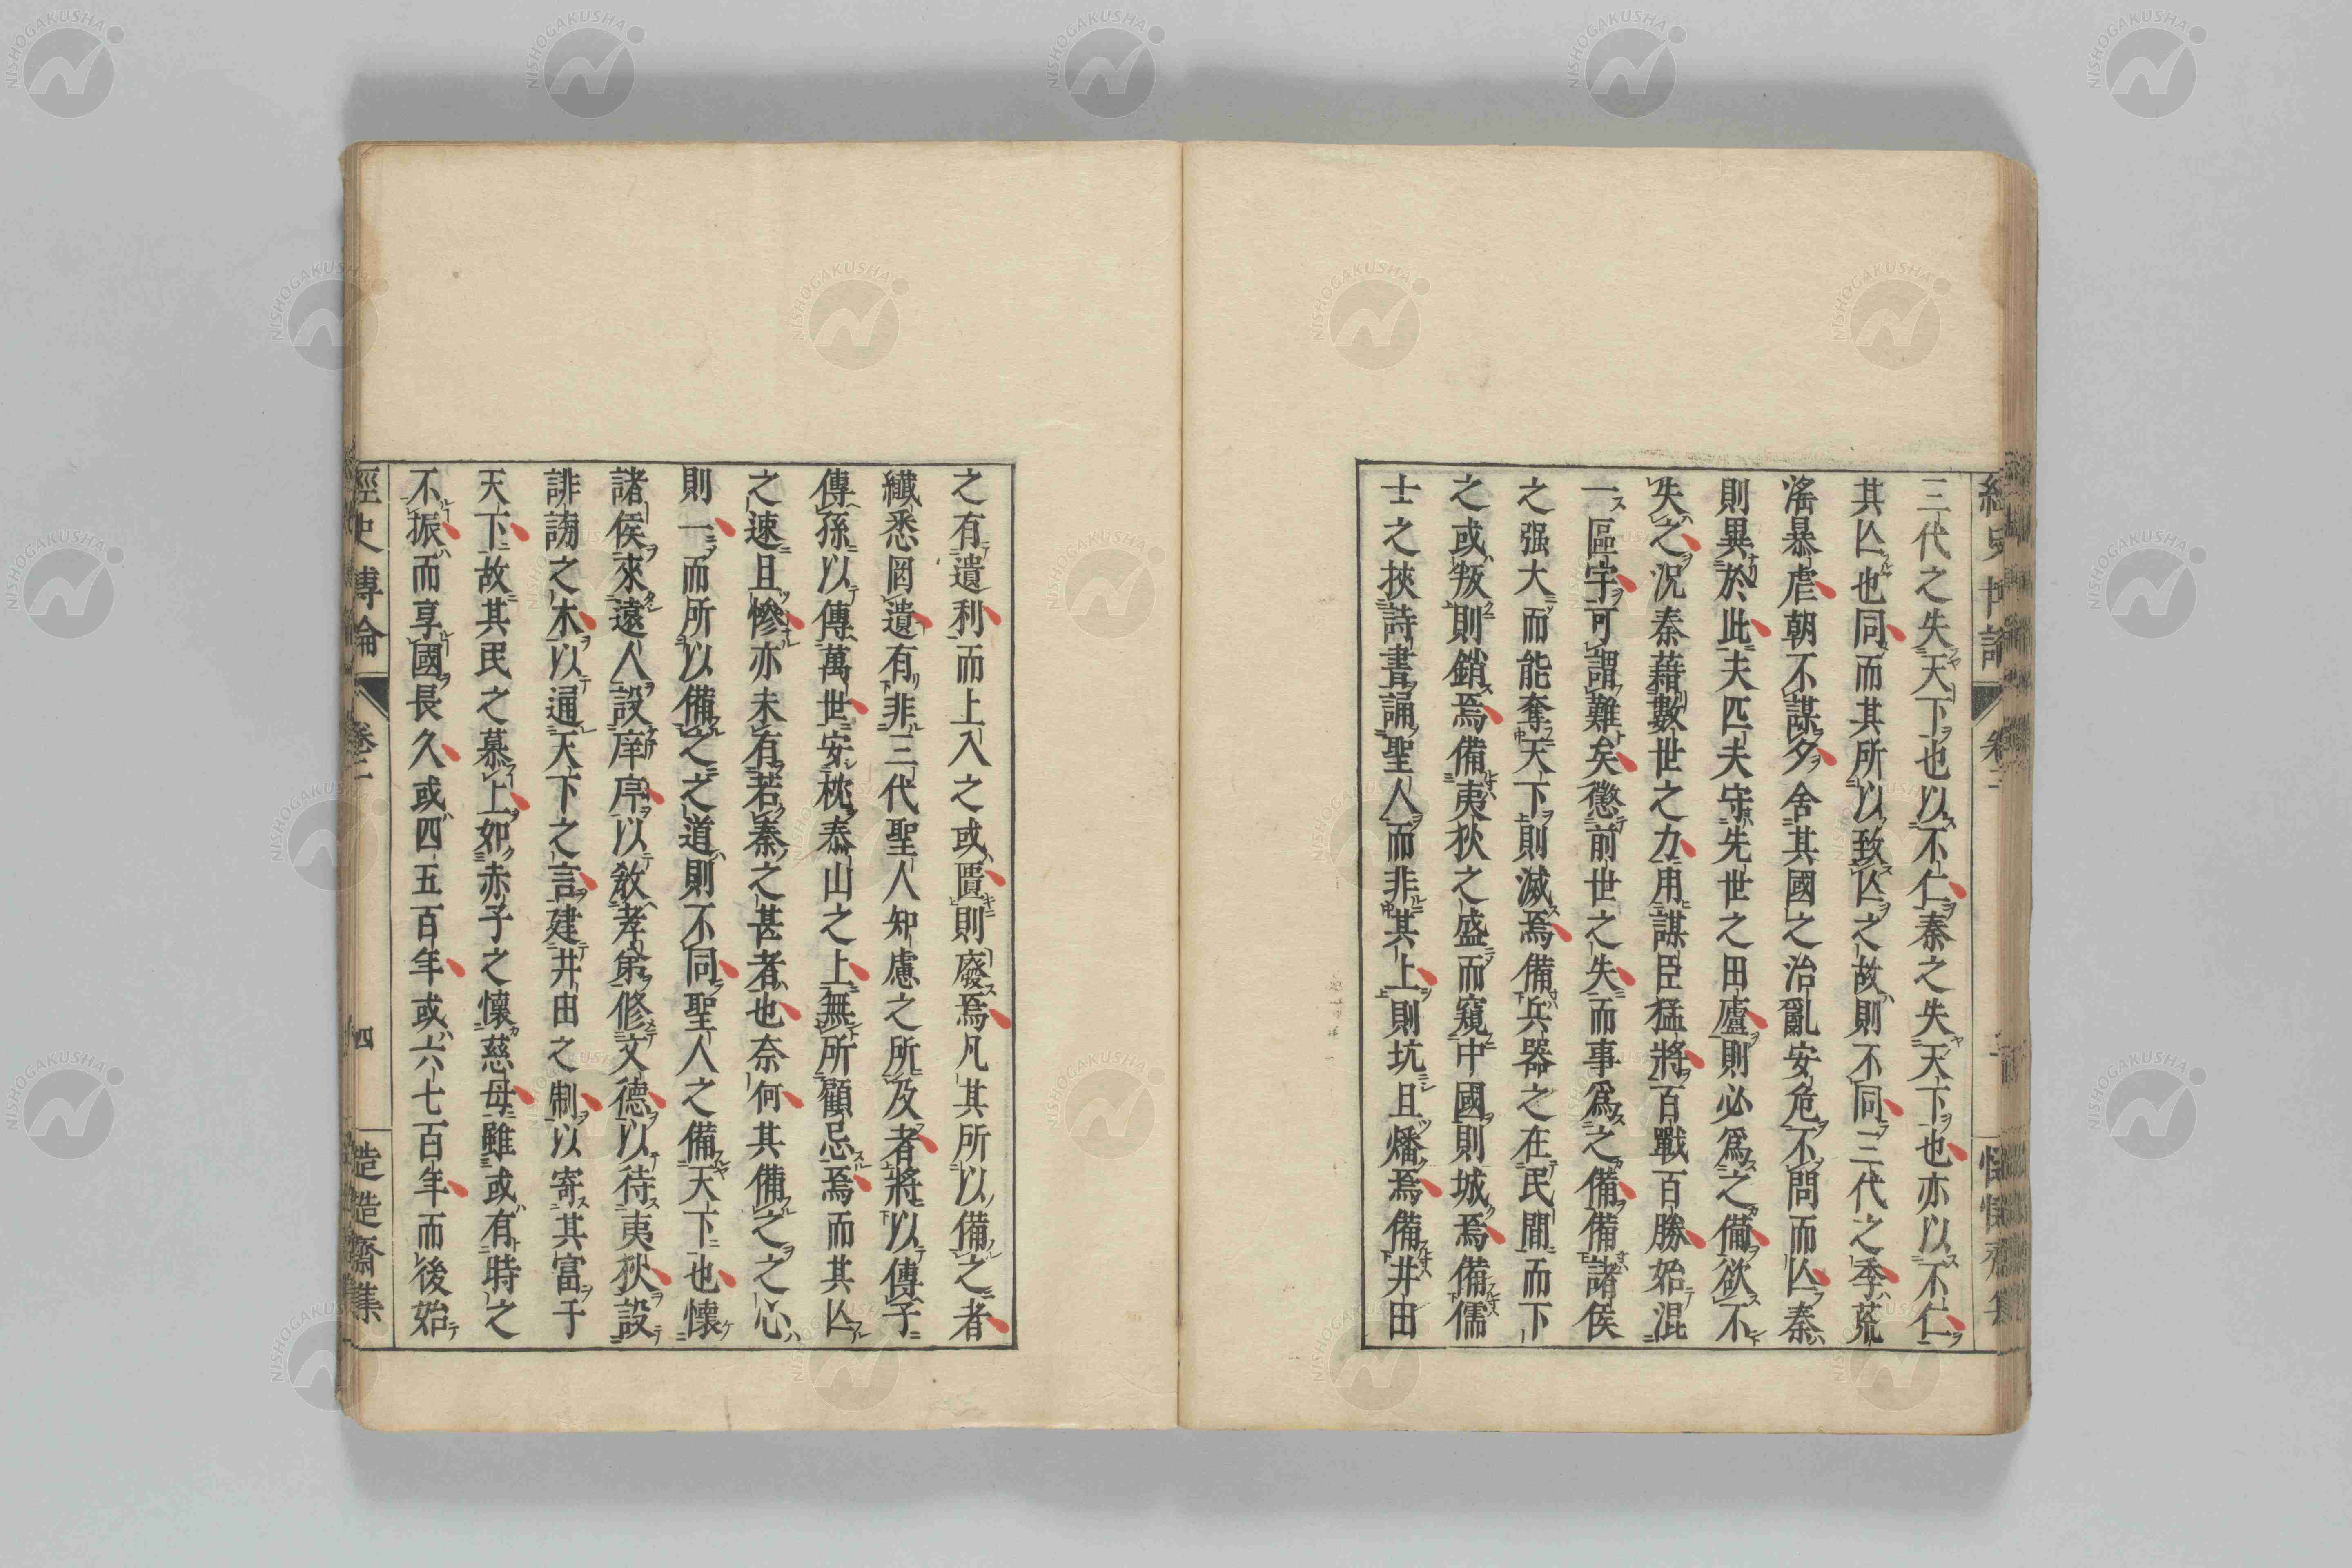 三代之失天下也以不仁秦之失天下也亦以不仁
其亾也同而其所以致亾之故則不同三代之季荒
滛暴虐朝不謀夕舍其國之治亂安危不問而亾秦
則異於此夫匹夫守先世之田廬則必爲之備欲不
失之況秦藉數世之力用謀臣猛將百戰百勝始混
一區宇可謂難矣懲前世之失而事爲之備備諸侯
之强大而能奪天下則滅焉備兵器之在民間而下
之或叛則銷焉備夷狄之盛而窺中國則城焉備儒
士之挾詩書誦聖人而非其上則坑且燔焉備井田
之有遺利而上入之或匱則廢焉凡其所以備之者
纎悉罔遺有非三代聖人知慮之所及者將以傳子
傳孫以傳萬世安枕泰山之上無所顧忌焉而其亾
之速且慘亦未有若秦之甚者也奈何其備之之心
則一而所以備之之道則不同聖人之備天下也懷
諸侯來遠人設庠序以敎孝弟修文德以待夷狄設
誹謗之木以通天下之言建井田之制以寄其富于
天下故其民之慕上如赤子之懷慈母雖或有時之
不振而享國長久或四五百年或六七百年而後始
經史博論 卷二 四 慥慥齋集
NISHOGAKUSHA